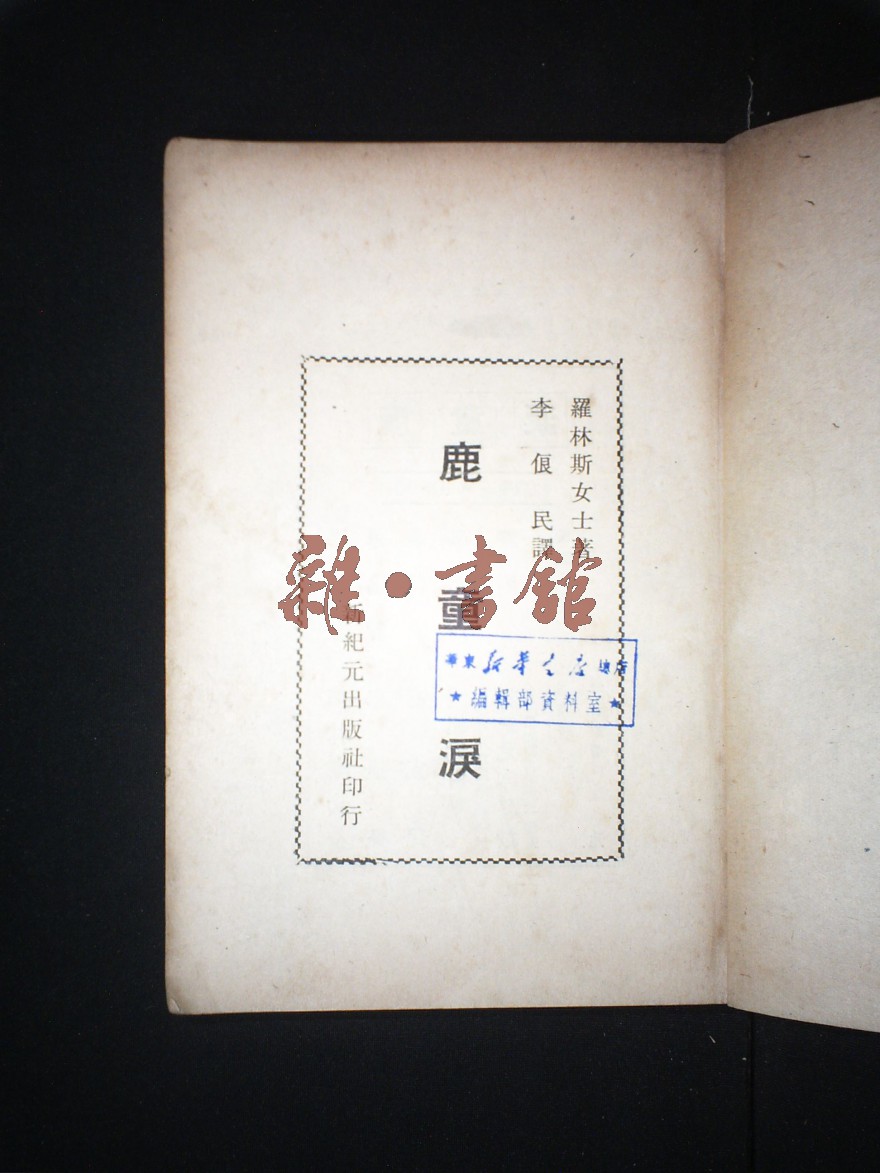 羅林斯女士著
李俍民譯
鹿童淚
新紀元出版社印行
華東新華書店總店
★編輯部資料室★
雜·書館